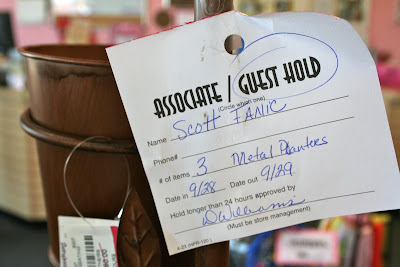 ASSOCIATE / GUEST HOLD
(Circle which one)
Name Scott FANIC
Phone#
# of items 3 Metal Planters
Date in 9/28 Date out 9/29
Hold longer than 24 hours approved by
DWilliams
(Must be store management)